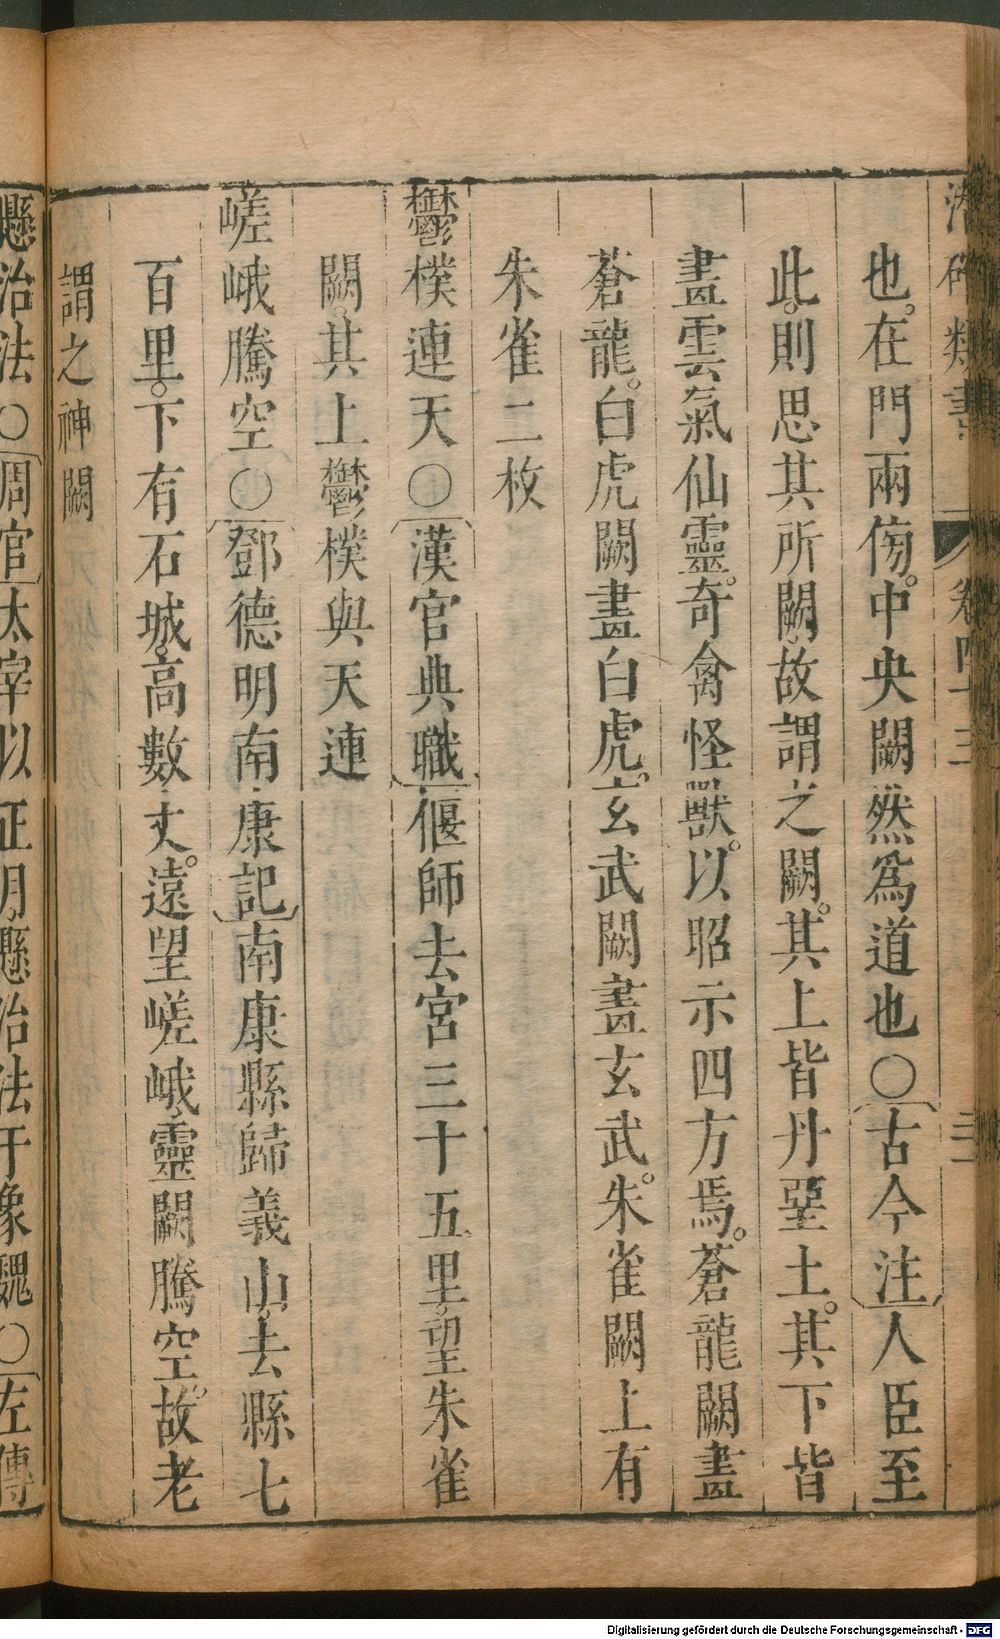 潛確類書 卷四十三 三
也在門兩傍。中央闕然爲道也○古今注人臣至
此。則思其所闕。故謂之闕。其上皆丹堊土。其下皆
畫雲氣仙靈。奇禽怪獸。以昭示四方焉。蒼龍闕畫
蒼龍。白虎闕畫白虎。玄武闕畫玄武。朱雀闕上有
朱雀二枚
鬱樸連天○漢官典職偃師去宮三十五里。望朱雀
闕。其上鬱樸與天連
嵯峨騰空○鄧德明南康記南康縣歸義山。去縣七
百里。下有石城。高數丈。遠望嵯峨。靈闕騰空。故老
謂之神闕
懸治法○周官太宰以正月懸治法于象魏○左傳
Digitalisierung gefördert durch die Deutsche Forschungsgemeinschaft - DFG